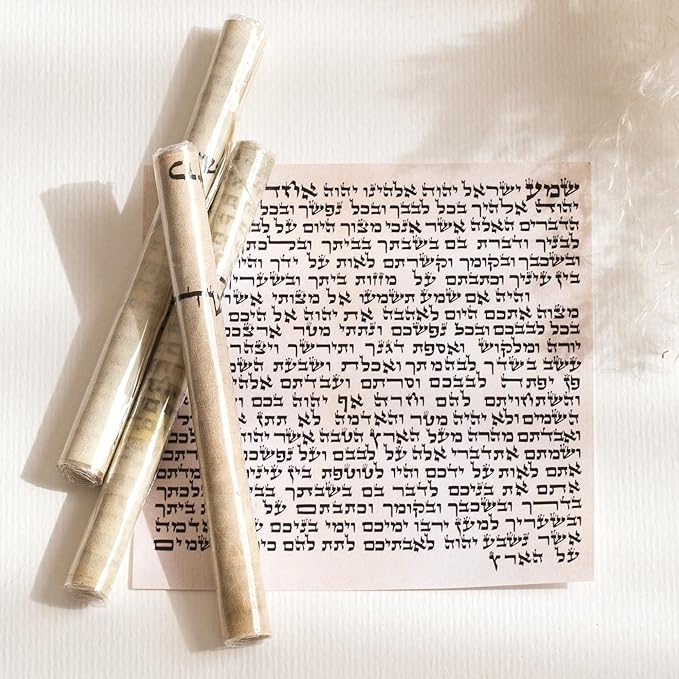 שמע ישראל יהוה אלהינו יהוה אחד
יהוה אלהיך בכל לבבך ובכל נפשך ובכל
הדברים האלה אשר אנכי מצוך היום על
לבניך ודברת בם בשבתך בביתך ובלכתך
ובשכבך ובקומך וקשרתם לאות על ידך והיו
בין עיניך וכתבתם על מזזות ביתך
והיה אם שמע תשמעו אל מצותי אשר
מצוה אתכם היום לאהבה את יהוה אלהיכם
בכל לבבכם ובכל נפשכם ונתתי מטר ארצכם
יורה ומלקוש ואספת דגנך ותירשך
עשב בשדך לבהמתך ואכלת ושבעת
פן יפתה לבבכם וסרתם ועבדתם
והשתחויתם להם וחרה אף יהוה בכם
השמים ולא יהיה מטר והאדמה לא תתן
ואבדתם מהרה מעל הארץ הטבה אשר
ושמתם את דברי אלה על לבבכם ועל
אתם לאות על ידכם והיו לטוטפת בין
אתם את בניכם לדבר בם בשבתך
בדרך ובשכבך ובקומך וכתבתם על ביתך
ובשעריך למען ירבו ימיכם וימי בניכם האדמה
אשר נשבע יהוה לאבתיכם לתת להם השמים
על הארץ